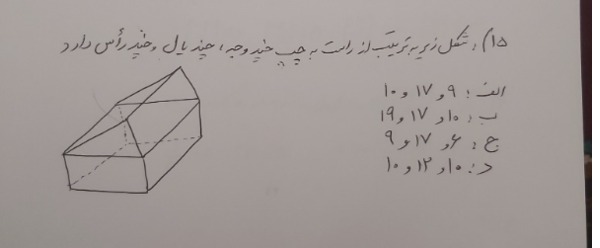 ۱۵) شکل زیر به ترتیب از راست به چپ چند وجه، چند یال و چند رأس دارد
الف: ۹ و ۱۷ و ۱۰
ب: ۱۰ و ۱۷ و ۱۹
ج: ۶ و ۱۷ و ۹
د: ۱۰ و ۱۲ و ۱۰